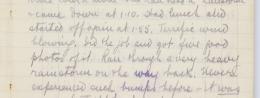 came down at 1.10. Had lunch and
started off again at 1.55. Terrific wind
blowing, did the job and got five good
photos of it. Ran through a very heavy
rainstorm on the way back. Never
experienced such bumps before - it was